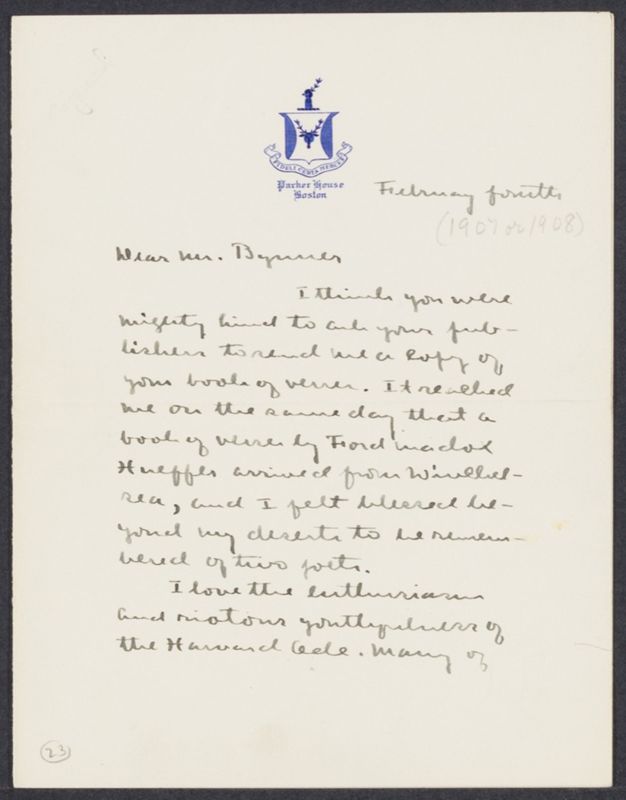 FIDELI CERTA MERCES
Parker House
Boston
February fourth
(1907 or 1908)
Dear Mr. Bynner
I think you were
mighty kind to ask your pub-
lishers to send me a copy of
your book of verses. It reached
me on the same day that a
book of verses by Ford Madox
Hueffer arrived from Winchel-
sea, and I felt blessed be-
yond my deserts to be remem-
bered of two poets.
I love the enthusiasm
and riotous youthfulness of
the Harvard Ode. Many of
23